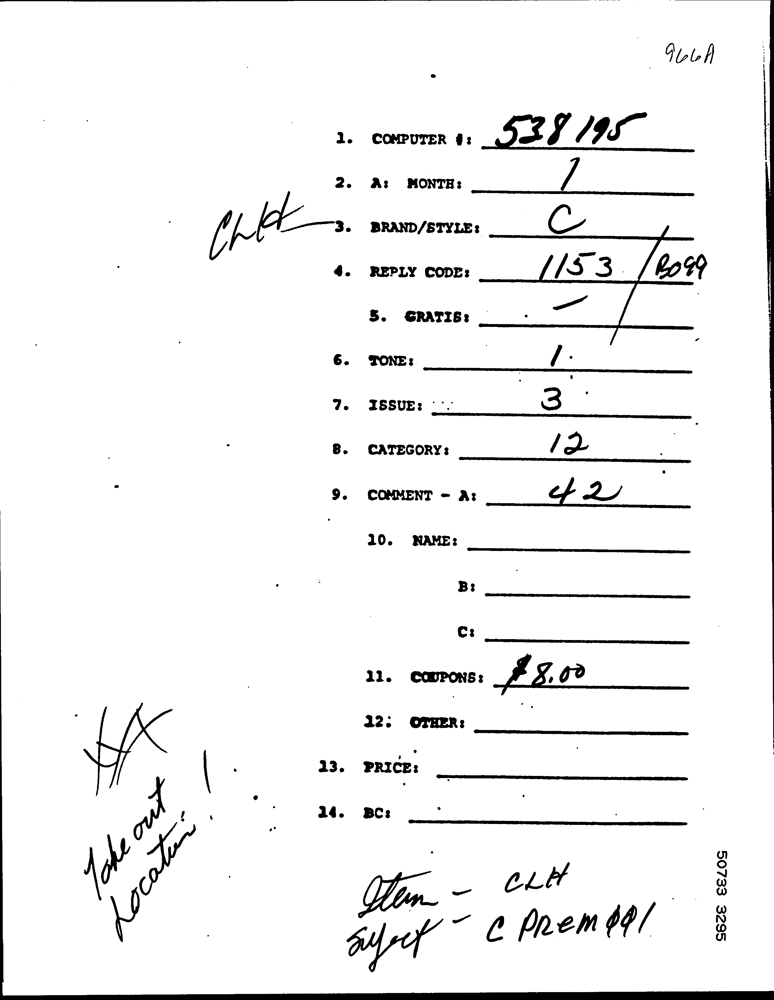 966A
1. COMPUTER #: 538195
2. A: MONTH: 1
CLH 3. BRAND/STYLE: C
4. REPLY CODE: 1153 / B099
5. GRATIS: —
6. TONE: 1
7. ISSUE: 3
8. CATEGORY: 12
9. COMMENT - A: 42
10. NAME:
B:
C:
11. COUPONS: $8.00
12. OTHER:
13. PRICE:
14. BC:
Take out
Location!
Item - CLH
Subject - C PREM 001
50733 3295